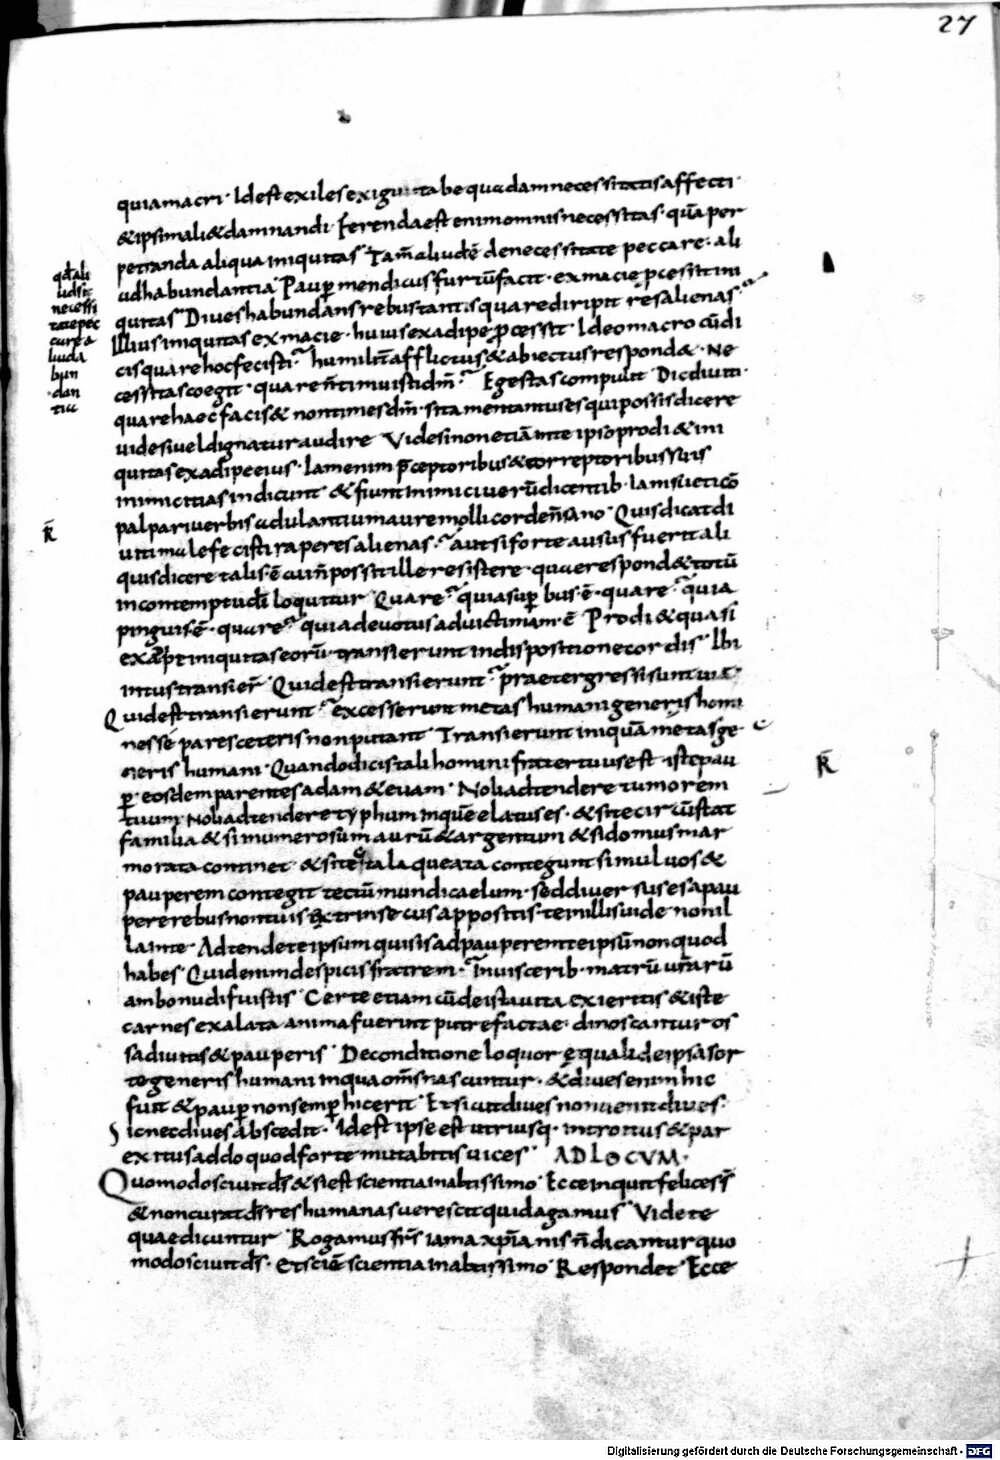 27
quia macri · Idest exiles exigui tabe quadam necessitatis affecti ·
& ipsi mali & damnandi · Ferenda est enim omnis necessitas · quā per
petranda aliqua iniquitas Tam̄ aliud ē de necessitate peccare · ali
ud habundantia Paup mendicus furtū facit · ex macie pcessit ini
quitas Dives habundans rebus tantis quare diripit res alienas
Illius iniquitas ex macie · huius ex adipe pcessit · Ideo macro cū di
cis quare hoc fecisti · humilit̄ afflictus & abiectus respond& · Ne
cessitas coegit · quare n̄ timuisti dm̄ · Egestas compulit Dic diviti ·
quare haec facis & non times dm̄ · si tamen tantus es qui possis dicere
vide si vel dignatur audire Vide si non etiā inte ipso prodi& ini
quitas ex adipe eius · Iam enim p̄ceptoribus & correptoribus suis
inimicitias indicunt & fiunt inimici verū dicentib · Iam sueti cō
palpari verbis adulantium aure molli corde n̄ sano Quis dicat di
viti male fecisti rapere s alienas · aut si forte ausus fuerit ali
quis dicere talis ē cui n̄ possit ille resistere · quae respond& totū
in contemptu dī loquitur Quare quia supbus · ē · quare quia
pinguis ē · quare quia devotus ad victimam · ē Prodi& quasi
ex adipe iniquitas eorū · transierunt in dispositione cordis Ibi
intus transier̄ Quid est transierunt praetergressi sunt viā ·
Quid est transierunt excesserunt metas humani generis homi
nes se pares ceteris non putant Transierunt inquā metas ge
neris humani · Quando dicis tali homini frater tuus est iste pau
p · eosdem parentes adam & evam · Noli adtendere tumorem
tuum Noli adtendere typhum in quē elatus es · & si te circūstat
familia & si numerosum aurū & argentum & si domus mar
morata continet · & si te tecta laqueata contegunt simul vos &
pauperem contegit tectū mundi caelum · sed diversus es a pau
pere rebus non tuis Extrinsecus appositis · te in illis vide non il
la in te · Adtende te ipsum qui sis ad pauperem te ipsū non quod
habes Quid enim despicis fratrem · In viscerib · matrū ur̄arū
ambo nudi fuistis Certe etiam cū de ista vita exieritis & iste
carnes exalata anima fuerint putrefactae · dinoscantur os
sa divitis & pauperis De conditione loquor ęquali de ipsa sor
te generis humani in qua om̄s nascuntur · & dives enim hic
fiit & paup non semp hic erit Et sicut dives non venit dives ·
Sic nec dives abscedit · Id est ipse est utriusq · introitus & par
exitus addo quod forte mutabitis vices AD LOCVM ·
Quomodo scivit ds̄ & si est scientia in altissimo Ecce inquit felices s̄
& non curat ds̄ res humanas vere scit quid agamus Videte
quae dicuntur Rogamus frs̄ iam a xp̄ianis n̄ dicantur quo
modo scivit ds̄ · Et si ē scientia in altissimo Respondet Ecce
qd̄ ali
ud sit
necessi
tate pec
care a
liud a
bun
dan
tia
R̄
R̄
Digitalisierung gefördert durch die Deutsche Forschungsgemeinschaft - DFG